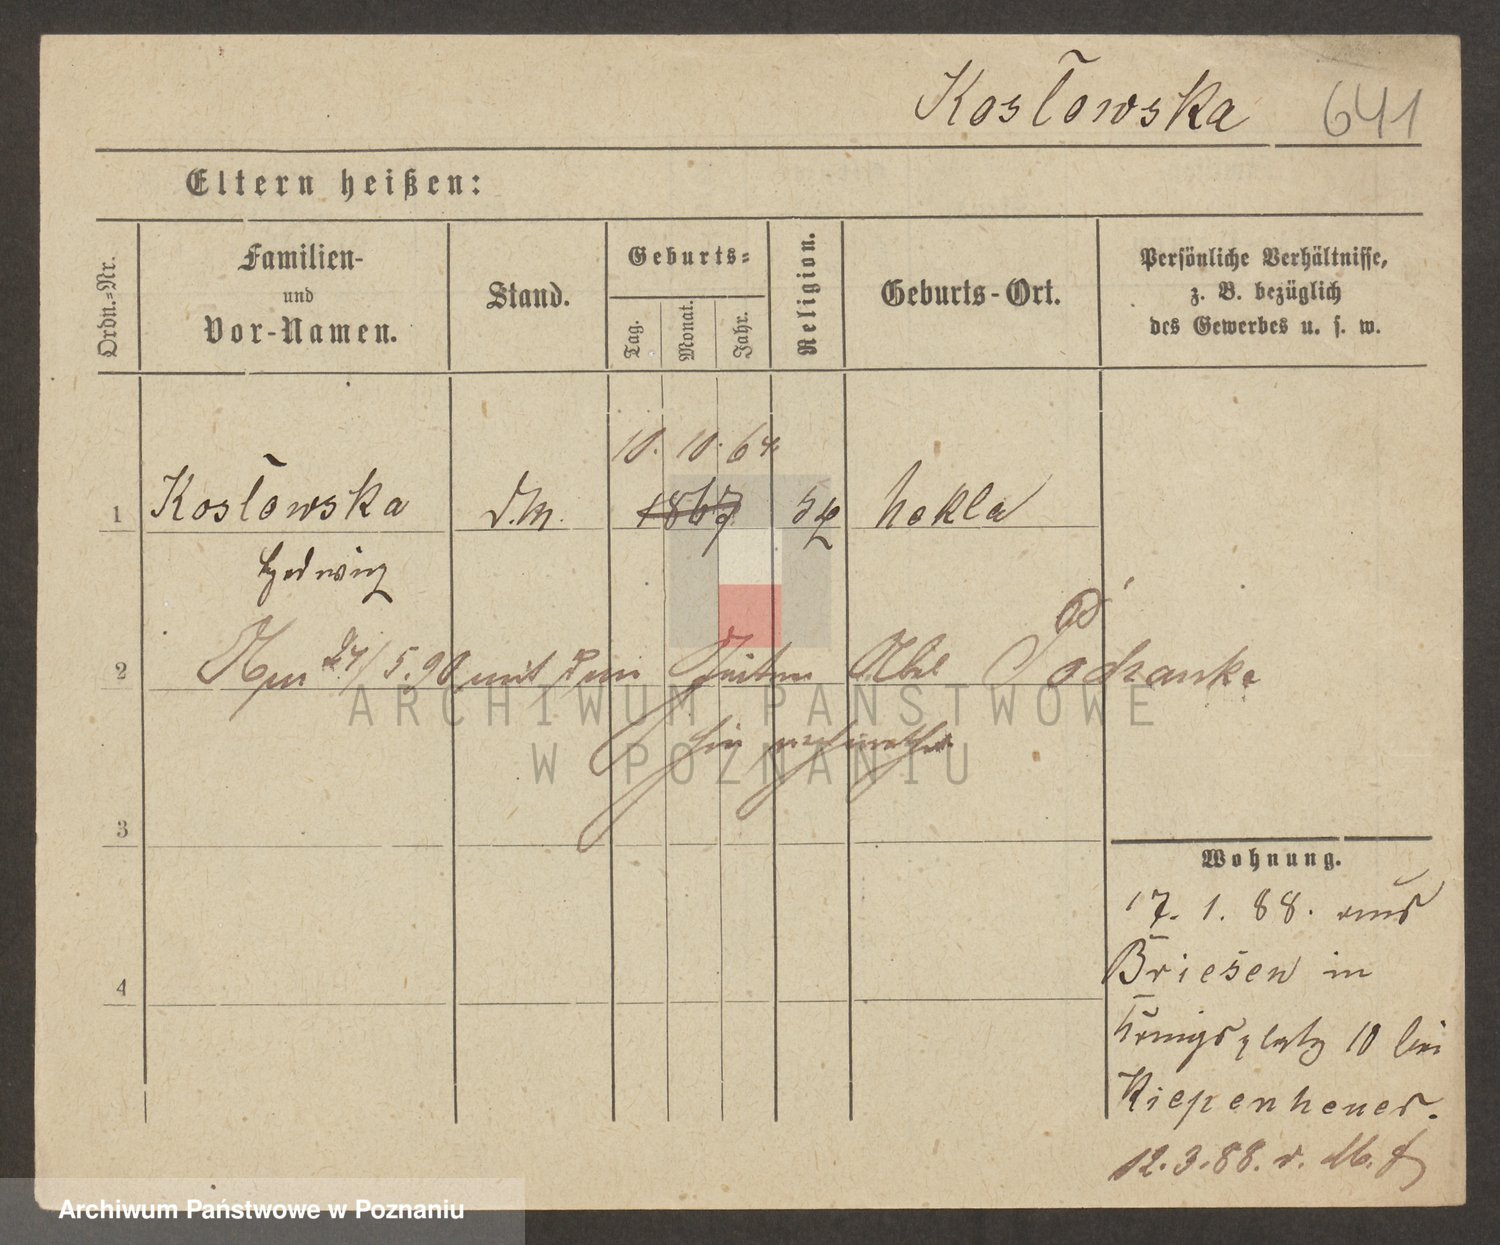 Kosłowska 641
Eltern heißen:
Ordn.=Nr.
Familien-
und
Vor-Namen.
Stand.
Geburts=
Tag.
Monat.
Jahr.
Religion.
Geburts-Ort.
Persönliche Verhältnisse,
z. B. bezüglich
des Gewerbes u. s. w.
10. 10. 64
1 Kosłowska D.M. 1867 Hekla
Hedwig
2 Am 27/5.90 mit dem Abel Podranke
3
4
Wohnung.
17. 1. 88. aus
Briesen in
Königsplatz 10 bei
Kiepenheuer.
12.3.88.
ARCHIWUM PAŃSTWOWE
W POZNANIU
Archiwum Państwowe w Poznaniu